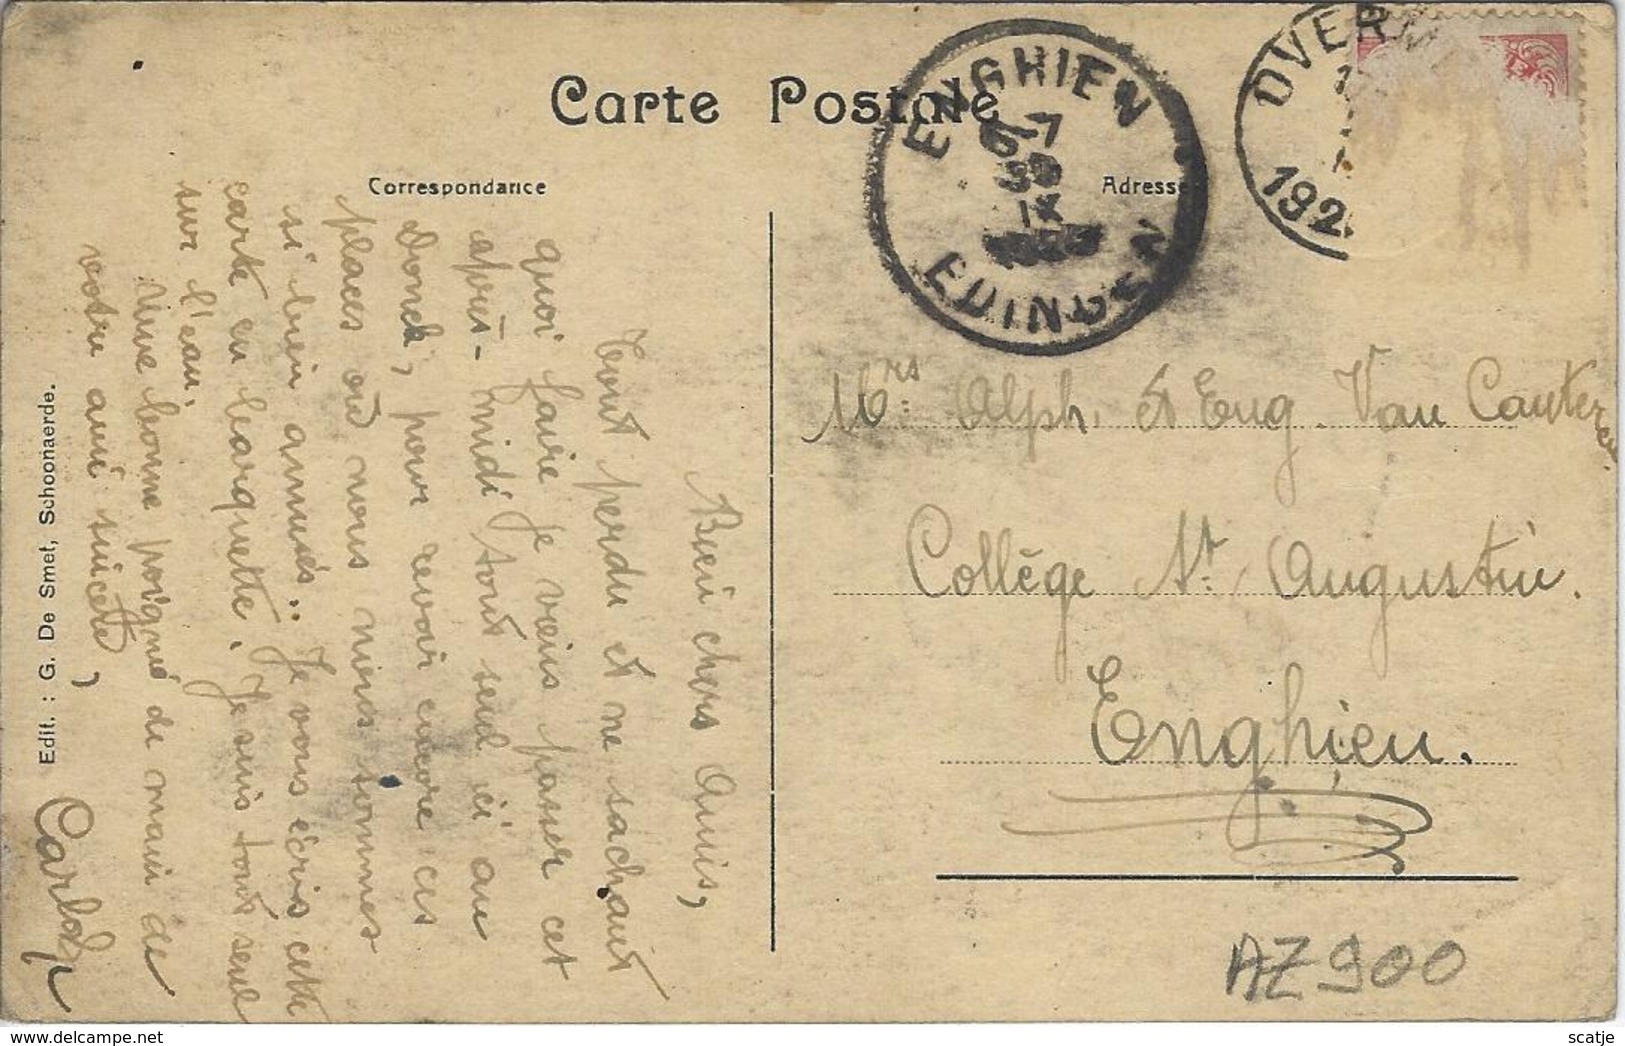 Carte Postale
Correspondance
Adresse
ENGHIEN
6-7
30
IX
EDINGEN
OVER
192
Bien chers Amis,
Tout perdu et ne sachant
quoi faire je viens passer cet
après-midi tout seul ici au
Donck, pour revoir encore ces
places où nous nous sommes
si bien amusés.. Je vous écris cette
carte en barquette. Je suis tout seul
sur l'eau.
Une bonne poignée de main de
votre ami sincère,
Carlos
Edit. : G. De Smet, Schoonaerde.
Mrs. Alph. et Eug. Van Canteren
Collège St. Augustin.
Enghien.
AZ900
delcampe.net
scatje